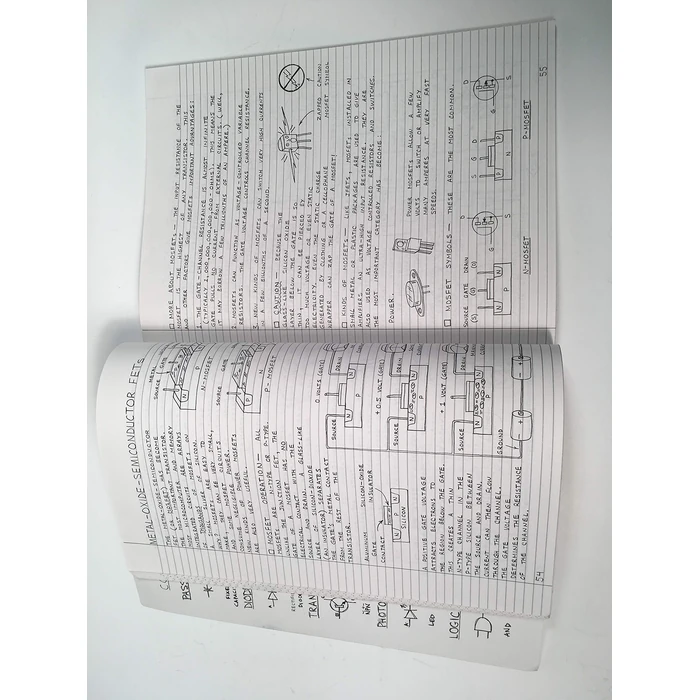 METAL-OXIDE-SEMICONDUCTOR FETS
METAL-OXIDE-SEMICONDUCTOR
THE
HAS BECOME
TRANSISTOR.
AND MEMORY
ARE ARRAYS
OF MOSFETS ON
OF SILICON.
EASY TO
WHY?
CAN BE VERY SMALL,
CIRCUITS
POWER.
POWER MOSFETS
ARE ALSO VERY USEFUL.
METAL
SOURCE GATE
N-MOSFET
SOURCE GATE
P-MOSFET
MOSFET OPERATION — ALL
MOSFETS ARE N-TYPE OR P-TYPE.
UNLIKE THE JUNCTION FET, THE
GATE OF A MOSFET HAS NO
ELECTRICAL CONTACT WITH THE
SOURCE AND DRAIN. A GLASS-LIKE
LAYER OF SILICON-DIOXIDE
(AN INSULATOR) SEPARATES
THE GATE'S METAL CONTACT
FROM THE REST OF THE
TRANSISTOR.
ALUMINUM GATE CONTACT
SILICON-OXIDE INSULATOR
N N
SILICON
A POSITIVE GATE VOLTAGE
ATTRACTS ELECTRONS TO
THE REGION BELOW THE GATE.
THIS CREATES A THIN
N-TYPE CHANNEL IN THE
P-TYPE SILICON BETWEEN
THE SOURCE AND DRAIN.
CURRENT CAN THEN FLOW
THROUGH THE CHANNEL.
THE GATE VOLTAGE
DETERMINES THE RESISTANCE
OF THE CHANNEL.
0 VOLTS (GATE)
SOURCE DRAIN
N P
+ 0.5 VOLT (GATE)
SOURCE DRAIN
N P
+ 1 VOLT (GATE)
SOURCE DRAIN
N P
GROUND
54
MORE ABOUT MOSFETS — THE INPUT RESISTANCE OF THE
MOSFET IS THE HIGHEST OF ANY TRANSISTOR. THIS
AND OTHER FACTORS GIVE MOSFETS IMPORTANT ADVANTAGES:
1. THE GATE-CHANNEL RESISTANCE IS ALMOST INFINITE
(TYPICALLY 1,000,000,000,000,000 OHMS). THIS MEANS THE
GATE PULLS NO CURRENT FROM EXTERNAL CIRCUITS. (WELL,
IT MAY BORROW A FEW TRILLIONTHS OF AN AMPERE.)
2. MOSFETS CAN FUNCTION AS VOLTAGE-CONTROLLED VARIABLE
RESISTORS. THE GATE VOLTAGE CONTROLS CHANNEL RESISTANCE.
3. NEW KINDS OF MOSFETS CAN SWITCH VERY HIGH CURRENTS
IN A FEW BILLIONTHS OF A SECOND.
CAUTION — BECAUSE THE
GLASS-LIKE SILICON OXIDE
LAYER BELOW THE GATE IS SO
THIN, IT CAN BE PIERCED BY
TOO MUCH VOLTAGE OR EVEN STATIC
ELECTRICITY. EVEN THE STATIC CHARGE
GENERATED BY CLOTHING OR A CELLOPHANE
WRAPPER CAN ZAP THE GATE OF A MOSFET!
ZAPPED MOSFET
CAUTION SYMBOL
KINDS OF MOSFETS — LIKE JFETS, MOSFETS INSTALLED IN
SMALL METAL OR PLASTIC PACKAGES ARE USED TO GIVE
AMPLIFIERS AN ULTRA-HIGH INPUT RESISTANCE. THEY ARE
ALSO USED AS VOLTAGE CONTROLLED RESISTORS AND SWITCHES.
THE MOST IMPORTANT CATEGORY HAS BECOME:
POWER
POWER MOSFETS ALLOW A FEW
VOLTS TO SWITCH OR AMPLIFY
MANY AMPERES AT VERY FAST
SPEEDS.
MOSFET SYMBOLS — THESE ARE THE MOST COMMON.
SOURCE GATE DRAIN
(S) (G) (D)
N N
P
D
G
S
N-MOSFET
S G D
P P
N
D
G
S
P-MOSFET
55
PASS
FIXED
CAPACI
DIOD
DIODE
TRAN
NPN
PHOTO
LED
LOGIC
AND